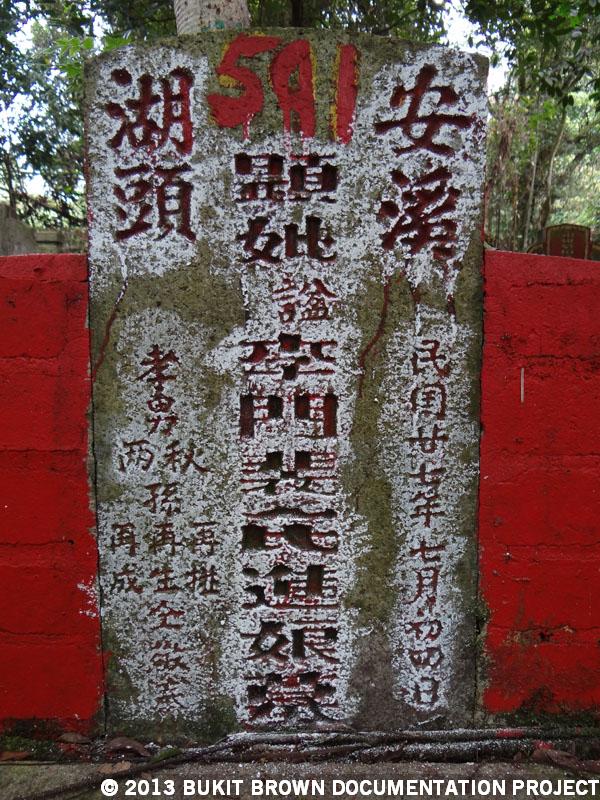 591
安溪
民国廿七年七月初四日
顯妣
諡
李門裴氏進娘墓
湖頭
孝男
秋
两
孫再生仝敬奉
再
再成
© 2013 BUKIT BROWN DOCUMENTATION PROJECT